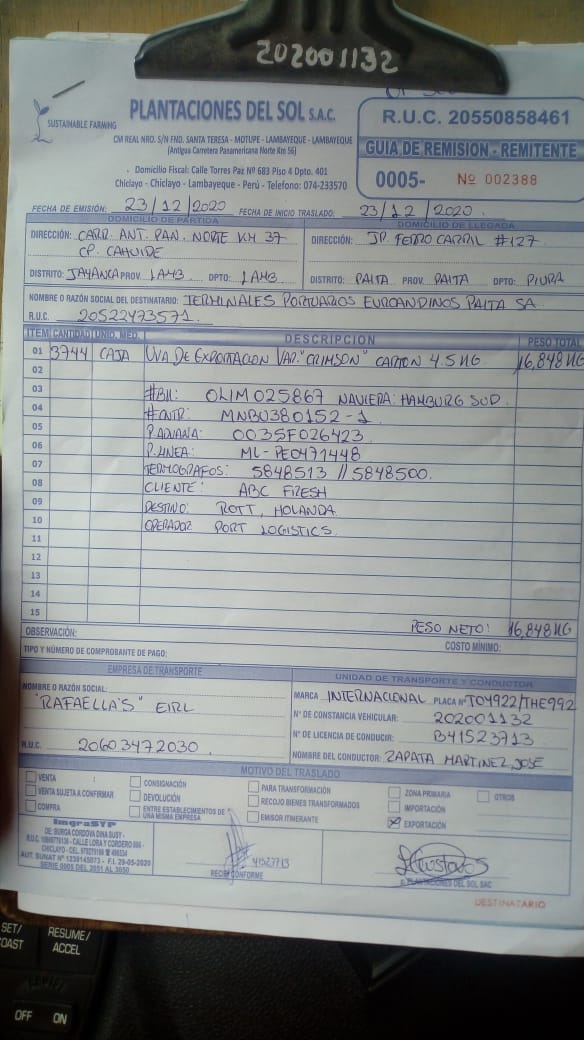 202001132
SUSTAINABLE FARMING
PLANTACIONES DEL SOL S.A.C.
CM REAL NRO. S/N FND. SANTA TERESA - MOTUPE - LAMBAYEQUE - LAMBAYEQUE
(Antigua Carretera Panamericana Norte Km 56)
Domicilio Fiscal: Calle Torres Paz Nº 683 Piso 4 Dpto. 401
Chiclayo - Chiclayo - Lambayeque - Perú - Telefono: 074-233570
R.U.C. 20550858461
GUIA DE REMISION - REMITENTE
0005- Nº 002388
FECHA DE EMISIÓN: 23/12/2020 FECHA DE INICIO TRASLADO: 23/12/2020.
DOMICILIO DE PARTIDA
DIRECCIÓN: CARR. ANT. PAN. NORTE KM 37
CP. CAHUIDE
DISTRITO: JAYANCA PROV. LAMB DPTO: LAMB
DOMICILIO DE LLEGADA
DIRECCIÓN: JR FERRO CARRIL #127
DISTRITO: PAITA PROV. PAITA DPTO: PIURA
NOMBRE O RAZÓN SOCIAL DEL DESTINATARIO: TERMINALES PORTUARIOS EUROANDINOS PAITA SA.
R.U.C. 20522473571
ITEM CANTIDAD UNID. MED. DESCRIPCION PESO TOTAL
01 3744 CAJA UVA DE EXPORTACION VAR. "CRIMSON" CARTON 4.5KG 16,848KG
02
03 #BK: OLIM025867 NAVIERA: HAMBURG SUD.
04 #CNTR: MNBU380152-1
05 P. ADUANA: 0035F026423
06 P. LINEA: ML-PE0471448
07 TERMOGRAFOS: 5848513 // 5848500.
08 CLIENTE: ABC FRESH
09 DESTINO: ROTT, HOLANDA
10 OPERADOR PORT LOGISTICS
11
12
13
14
15
PESO NETO: 16,848KG
OBSERVACIÓN:
TIPO Y NÚMERO DE COMPROBANTE DE PAGO: COSTO MÍNIMO:
EMPRESA DE TRANSPORTE
NOMBRE O RAZÓN SOCIAL:
"RAFAELLA'S" EIRL
R.U.C. 20603472030.
UNIDAD DE TRANSPORTE Y CONDUCTOR
MARCA INTERNACIONAL PLACA Nº TO4922/THE992
N° DE CONSTANCIA VEHICULAR: 202001132
N° DE LICENCIA DE CONDUCIR: B41523713
NOMBRE DEL CONDUCTOR: ZAPATA MARTINEZ JOSE
MOTIVO DEL TRASLADO
VENTA
VENTA SUJETA A CONFIRMAR
COMPRA
CONSIGNACIÓN
DEVOLUCIÓN
ENTRE ESTABLECIMIENTOS DE
UNA MISMA EMPRESA
PARA TRANSFORMACIÓN
RECOJO BIENES TRANSFORMADOS
EMISOR ITINERANTE
ZONA PRIMARIA
IMPORTACIÓN
EXPORTACIÓN
OTROS
ImgraSYP
DE: BURGA CORDOVA DINA SUSY -
CHICLAYO
AUT. SUNAT Nº 1239145073 - F.I. 29-05-2020
SERIE 0005 DEL 2051 AL 3050
RECIBI CONFORME
PLANTACIONES DEL SOL SAC
DESTINATARIO
SET/
COAST
RESUME/
ACCEL
OFF ON